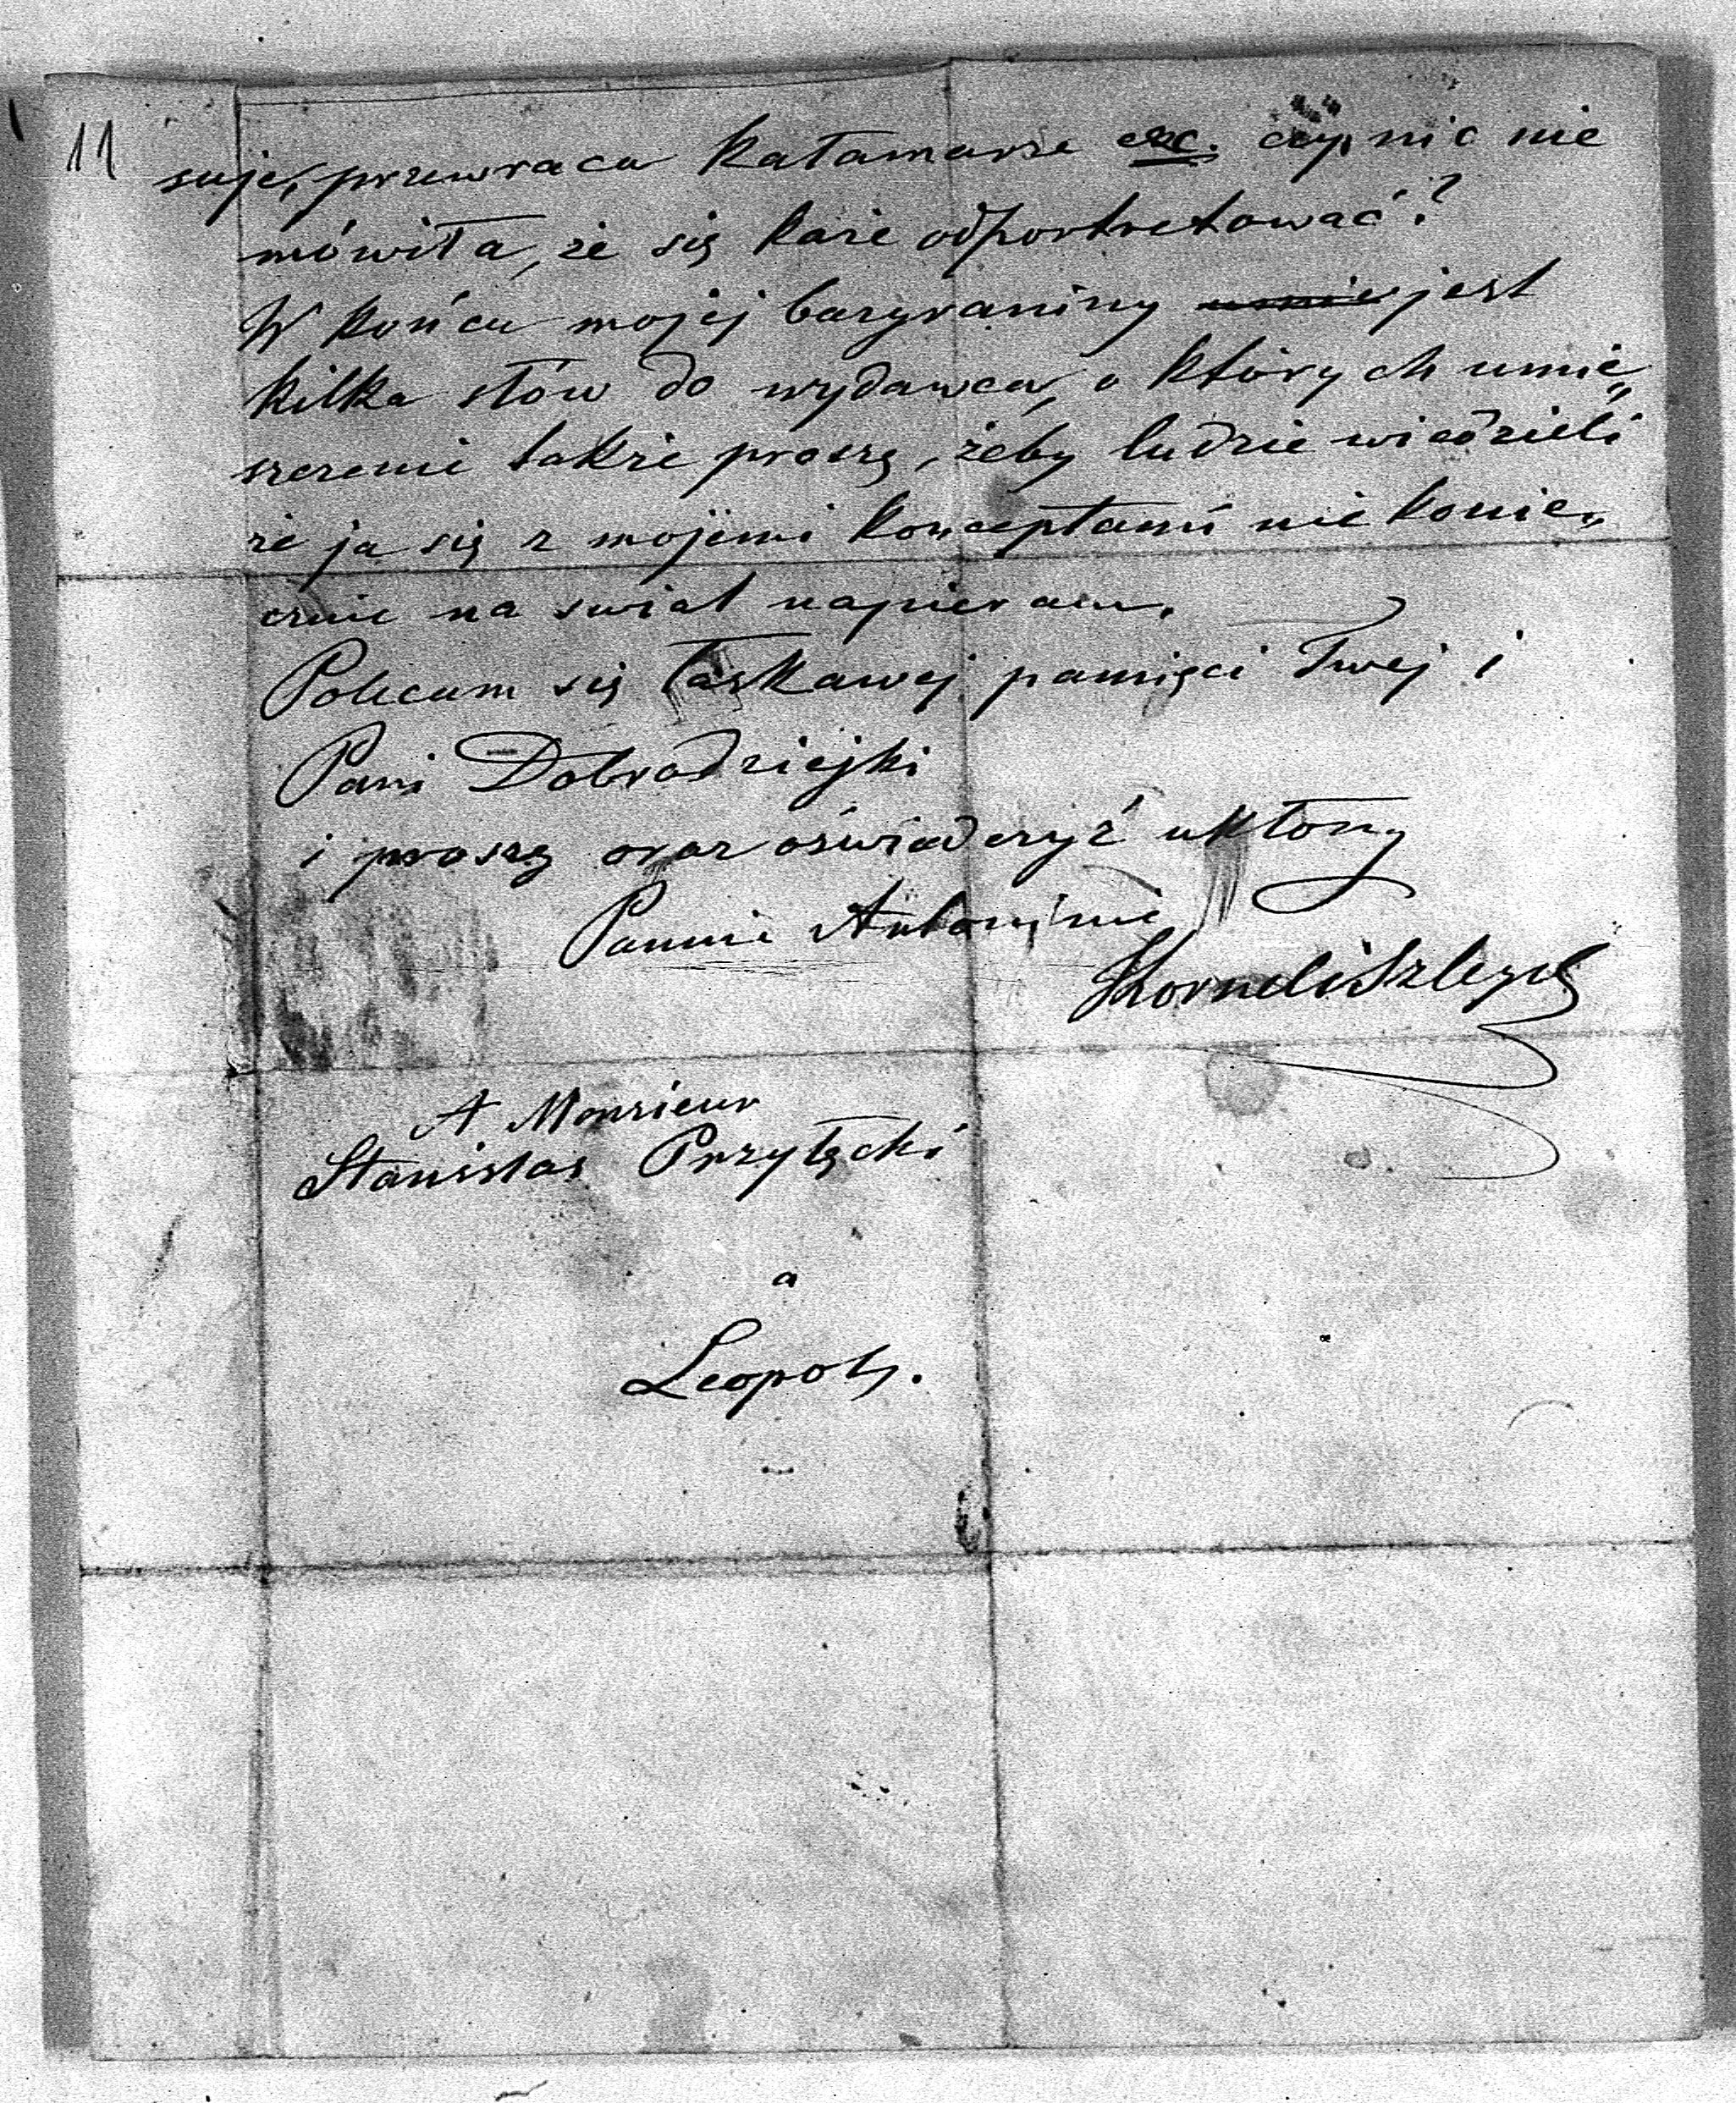 11
suje, przewraca kałamarze etc. czy nic nie
mówiła, że się każe odportretować?
W końcu mojej bazgraniny jest
kilka słów do wydawcy, o których umie„
szczenie także proszę, żeby ludzie wiedzieli
że ja się z mojemi konceptami nie konie„
cznie na świat napieram.
Polecam się łaskawej pamięci Twej i
Pani Dobrodziejki
i proszę oraz oświadczyć ukłony
Pannie Antoninie
Korneli
A Monsieur
Stanislas Przyłęcki
a
Leopol.